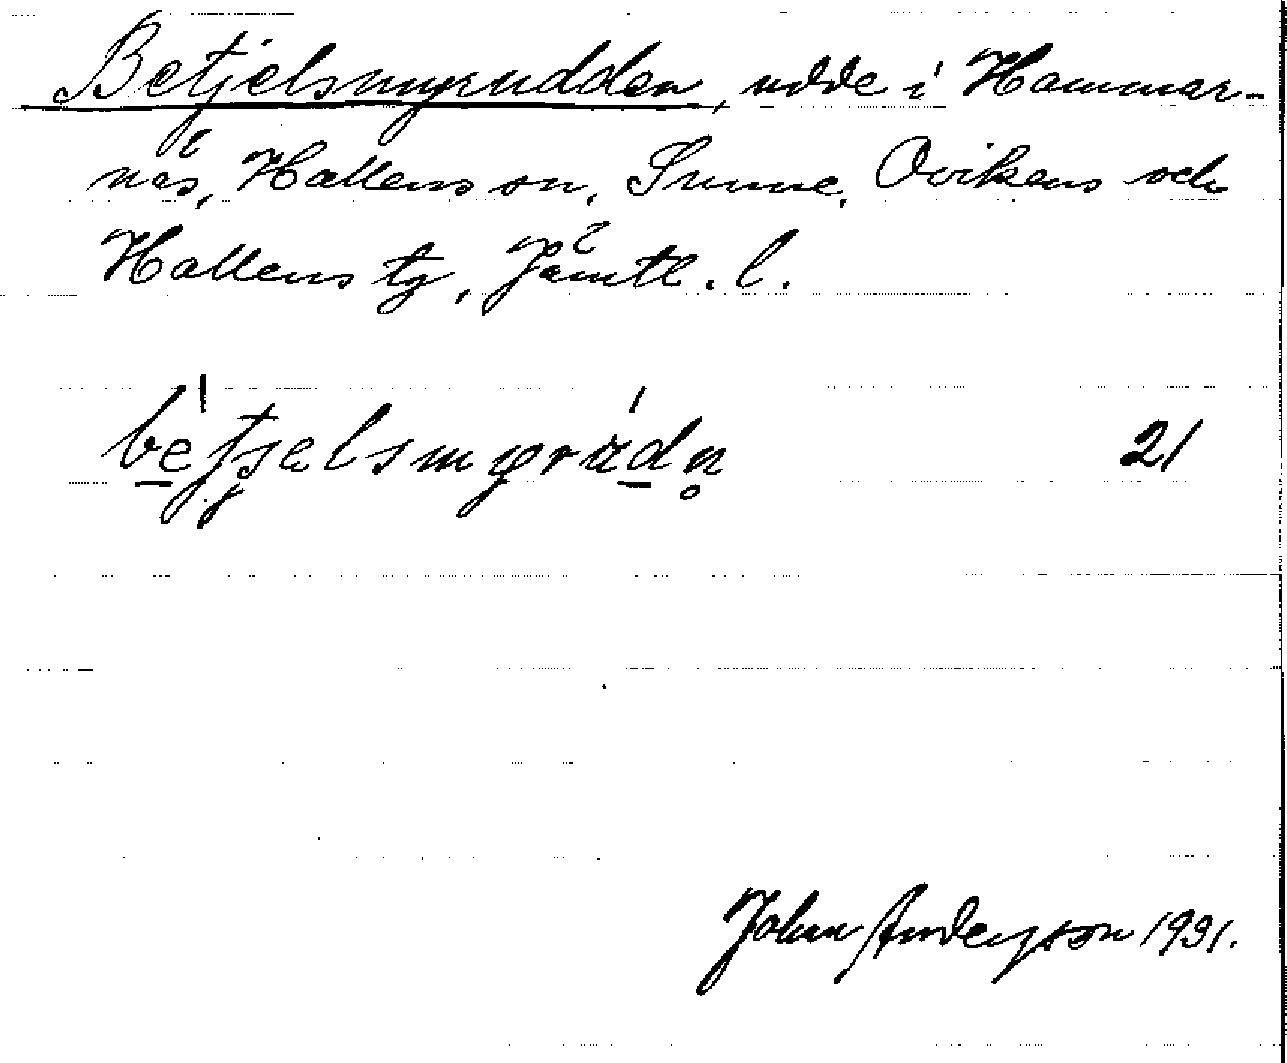 Betjelsmyrudden, udde i Hammar-
näs, Hallens sn, Sunne, Ovikens och
Hallens tg, Jämtl. l.
21
Johan Anderson 1931.